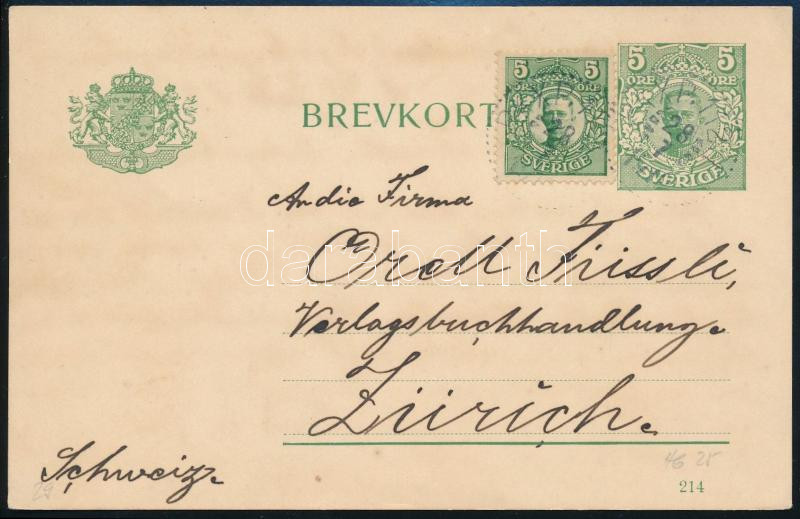 5 5
ÖRE ÖRE
SVERIGE
5 5
ÖRE ÖRE
SVERIGE
BREVKORT
An die Firma
Orell Füssli,
Verlagsbuchhandlung.
Zürich.
Schweiz.
214
darabanth